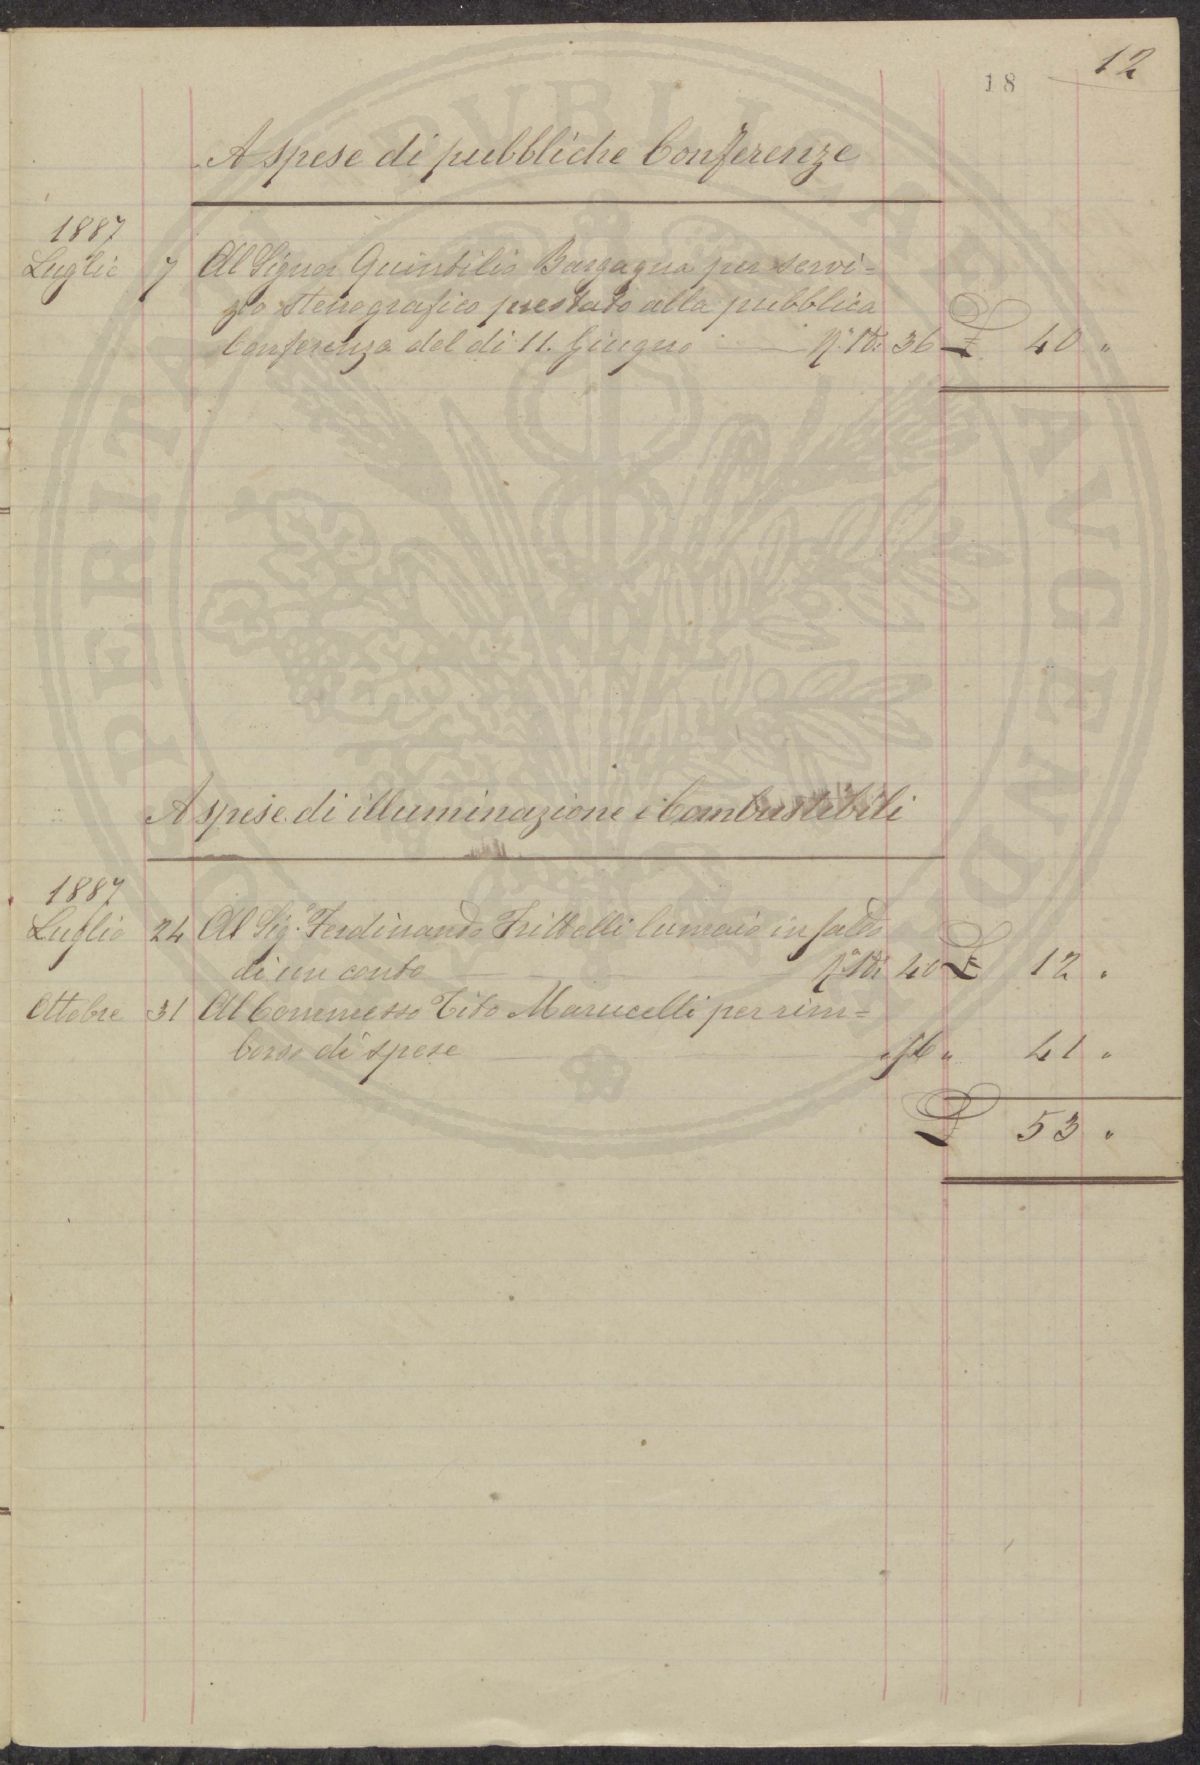 12
18
A spese di pubbliche Conferenze
1887
Luglio 7 Al Signor Quintilio Bargagna per servi=
zio stenografico prestato alla pubblica
Conferenza del dì 11. Giugno 36 £ 40 "
A spese di illuminazione e Combustibili
1887
Luglio 24 Al Sig. Ferdinando Frittelli lumaio in saldo
di un conto 40 £ 12 "
Ottobre 31 Al Commesso Tito Marucelli per rim=
borso di spese " 56 " 41 "
£ 53 "
PERITAT PVBLICAE AVGENDAE